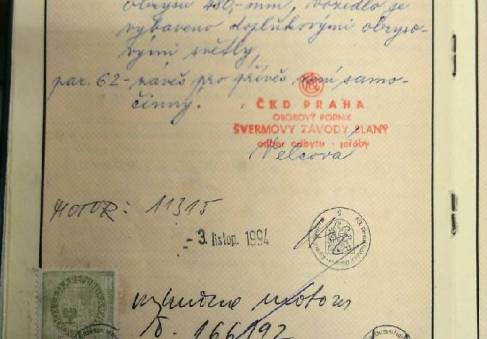 obrysu 480,-mm, vozidlo je
vybaveno doplňkovými obryso-
vými světly,
par. 62 - závěs pro přívěs není samo-
činný.
ČKD PRAHA
OBOROVÝ PODNIK
ŠVERMOVY ZÁVODY SLANÝ
odbor odbytu - jeřáby
Velcová
MOTOR: 11315
- 3. listop. 1994
výměna motoru
č. 166192